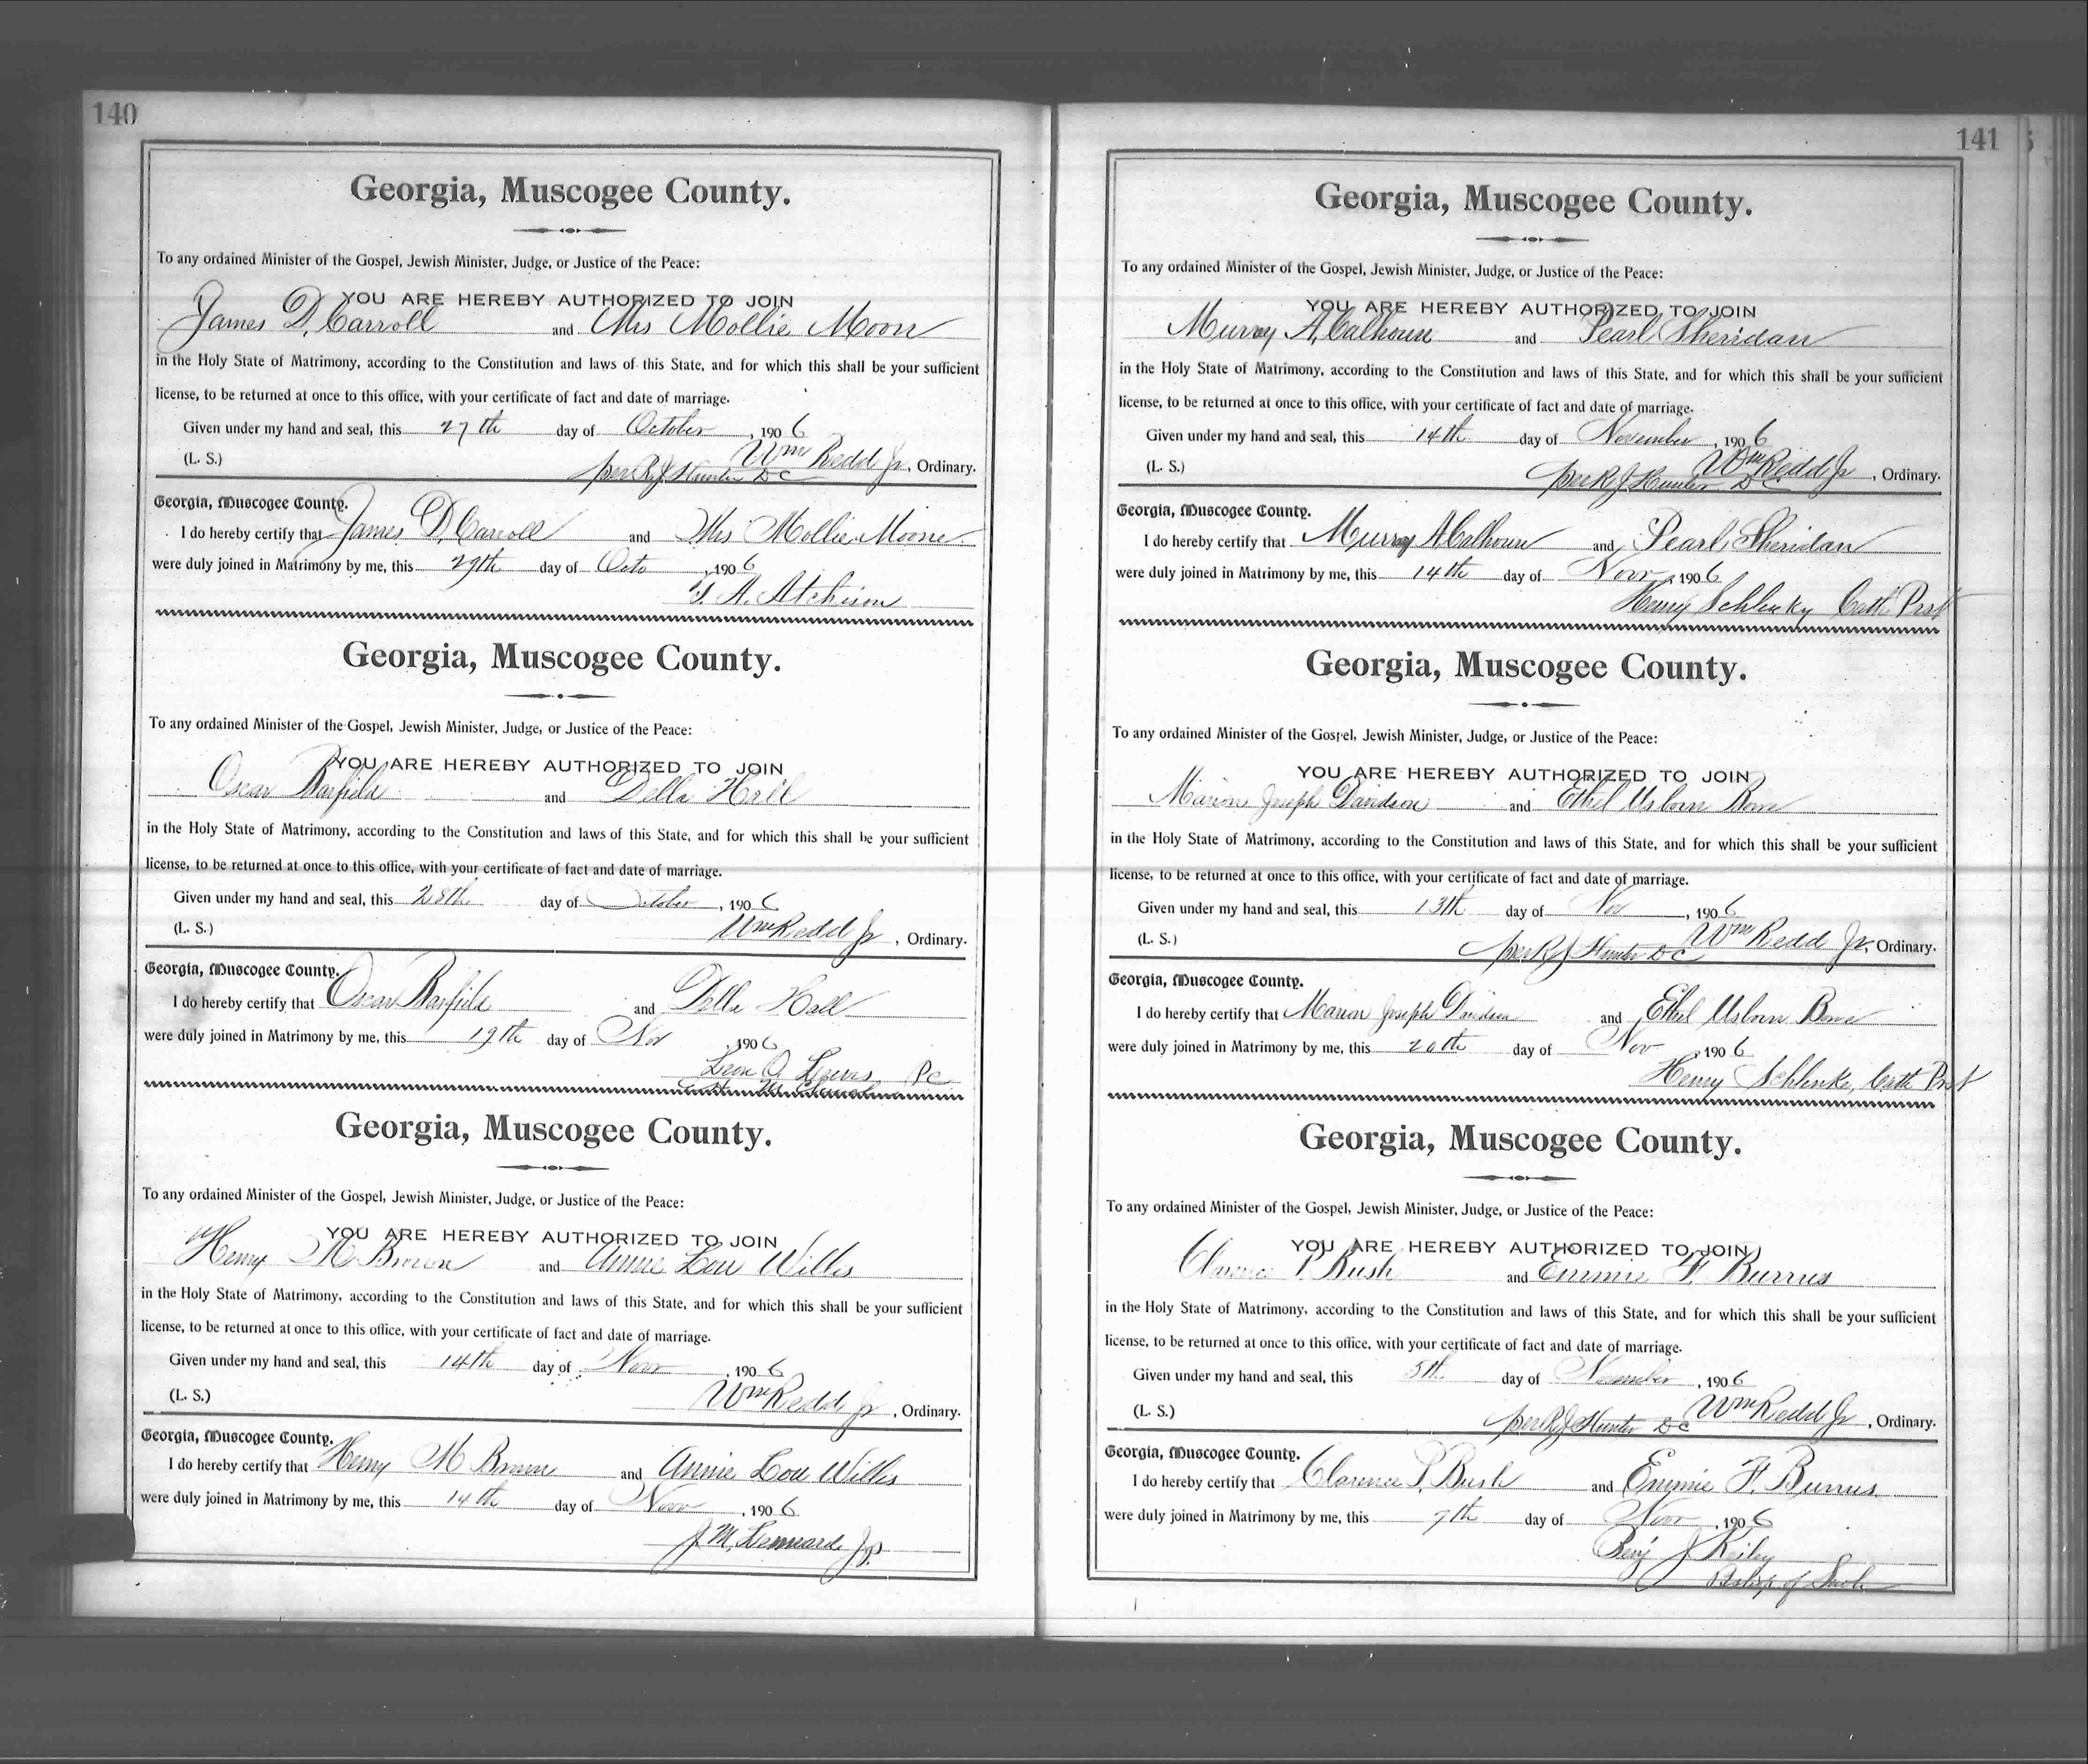 140
Georgia, Muscogee County.
To any ordained Minister of the Gospel, Jewish Minister, Judge, or Justice of the Peace:
YOU ARE HEREBY AUTHORIZED TO JOIN
James D. Carroll and Mrs Mollie Moon
in the Holy State of Matrimony, according to the Constitution and laws of this State, and for which this shall be your sufficient
license, to be returned at once to this office, with your certificate of fact and date of marriage.
Given under my hand and seal, this 27th day of October, 1906
(L. S.) Wm Redd Jr, Ordinary.
per R J Hunter D C
Georgia, Muscogee County.
I do hereby certify that James D. Carroll and Mrs Mollie Moone
were duly joined in Matrimony by me, this 29th day of Octo, 1906
Atchison
Georgia, Muscogee County.
To any ordained Minister of the Gospel, Jewish Minister, Judge, or Justice of the Peace:
YOU ARE HEREBY AUTHORIZED TO JOIN
Oscar Barfield and Della Hall
in the Holy State of Matrimony, according to the Constitution and laws of this State, and for which this shall be your sufficient
license, to be returned at once to this office, with your certificate of fact and date of marriage.
Given under my hand and seal, this 28th day of October, 1906
(L. S.) Wm Redd Jr, Ordinary.
Georgia, Muscogee County.
I do hereby certify that Oscar Barfield and Della Hall
were duly joined in Matrimony by me, this 19th day of Nov, 1906
Leon O. Lewis P C
Georgia, Muscogee County.
To any ordained Minister of the Gospel, Jewish Minister, Judge, or Justice of the Peace:
YOU ARE HEREBY AUTHORIZED TO JOIN
Henry M Brown and Annie Lou Willis
in the Holy State of Matrimony, according to the Constitution and laws of this State, and for which this shall be your sufficient
license, to be returned at once to this office, with your certificate of fact and date of marriage.
Given under my hand and seal, this 14th day of Novr, 1906
(L. S.) Wm Redd Jr, Ordinary.
Georgia, Muscogee County.
I do hereby certify that Henry M Brown and Annie Lou Willis
were duly joined in Matrimony by me, this 14th day of Novr, 1906
J. M. Lennard J.P.
141
Georgia, Muscogee County.
To any ordained Minister of the Gospel, Jewish Minister, Judge, or Justice of the Peace:
YOU ARE HEREBY AUTHORIZED TO JOIN
Murray A. Calhoun and Pearl Sheridan
in the Holy State of Matrimony, according to the Constitution and laws of this State, and for which this shall be your sufficient
license, to be returned at once to this office, with your certificate of fact and date of marriage.
Given under my hand and seal, this 14th day of November, 1906
(L. S.) Wm Redd Jr, Ordinary.
per R J Hunter D C
Georgia, Muscogee County.
I do hereby certify that Murray A Calhoun and Pearl Sheridan
were duly joined in Matrimony by me, this 14th day of Novr, 1906
Henry Schlenky Cath Prst
Georgia, Muscogee County.
To any ordained Minister of the Gospel, Jewish Minister, Judge, or Justice of the Peace:
YOU ARE HEREBY AUTHORIZED TO JOIN
Marion Joseph Davidson and Ethel Usborn Bone
in the Holy State of Matrimony, according to the Constitution and laws of this State, and for which this shall be your sufficient
license, to be returned at once to this office, with your certificate of fact and date of marriage.
Given under my hand and seal, this 13th day of Nov, 1906
(L. S.) Wm Redd Jr, Ordinary.
per R J Hunter D C
Georgia, Muscogee County.
I do hereby certify that Marion Joseph Davidson and Ethel Usborn Bone
were duly joined in Matrimony by me, this 20th day of Nov, 1906
Henry Schlenke, Cath Prst
Georgia, Muscogee County.
To any ordained Minister of the Gospel, Jewish Minister, Judge, or Justice of the Peace:
YOU ARE HEREBY AUTHORIZED TO JOIN
Clarence P. Bush and Emmie F. Burrus
in the Holy State of Matrimony, according to the Constitution and laws of this State, and for which this shall be your sufficient
license, to be returned at once to this office, with your certificate of fact and date of marriage.
Given under my hand and seal, this 5th day of November, 1906
(L. S.) Wm Redd Jr, Ordinary.
per R J Hunter D C
Georgia, Muscogee County.
I do hereby certify that Clarence P. Bush and Emmie F. Burrus
were duly joined in Matrimony by me, this 7th day of Novr, 1906
Benj J Keiley
Bishop of